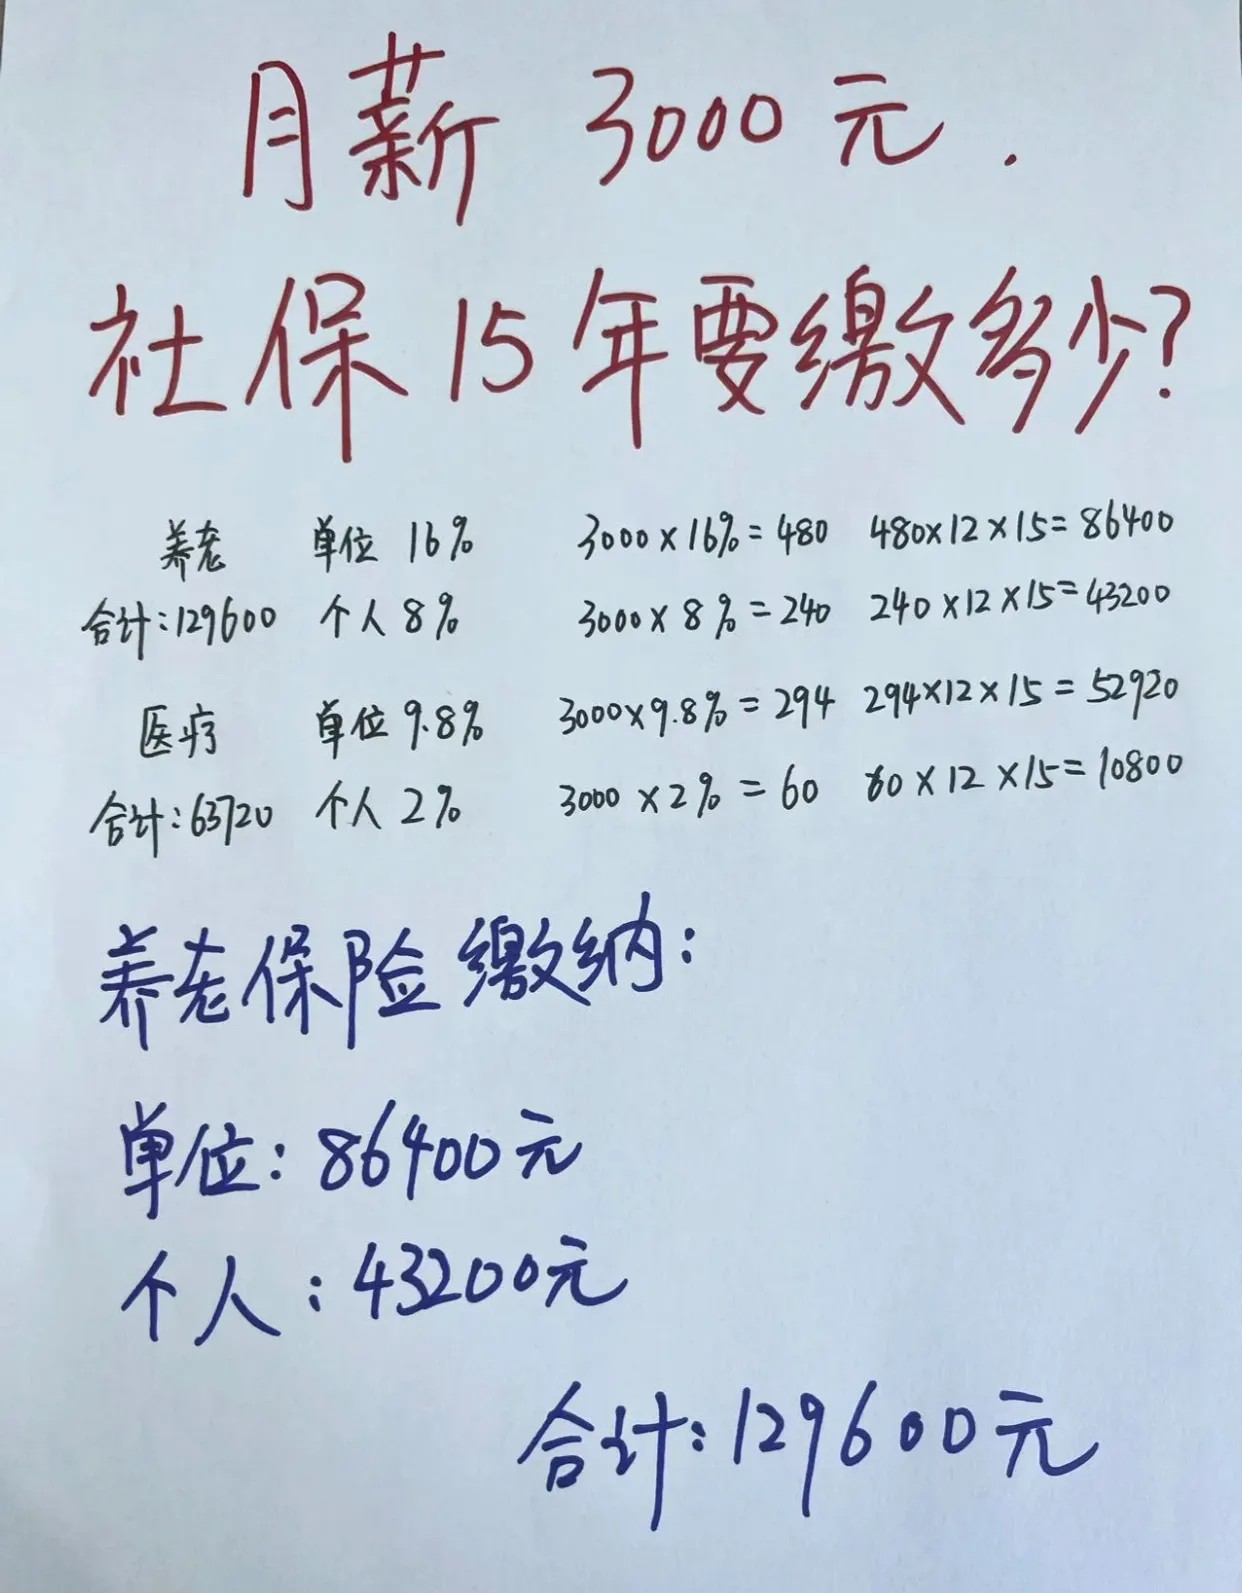 月薪 3000 元.
社保 15 年要缴多少?
养老 单位 16% 3000×16%=480 480×12×15=86400
合计:129600 个人 8% 3000×8%=240 240×12×15=43200
医疗 单位 9.8% 3000×9.8%=294 294×12×15=52920
合计:63720 个人 2% 3000×2%=60 60×12×15=10800
养老保险缴纳:
单位:86400元
个人:43200元
合计:129600元